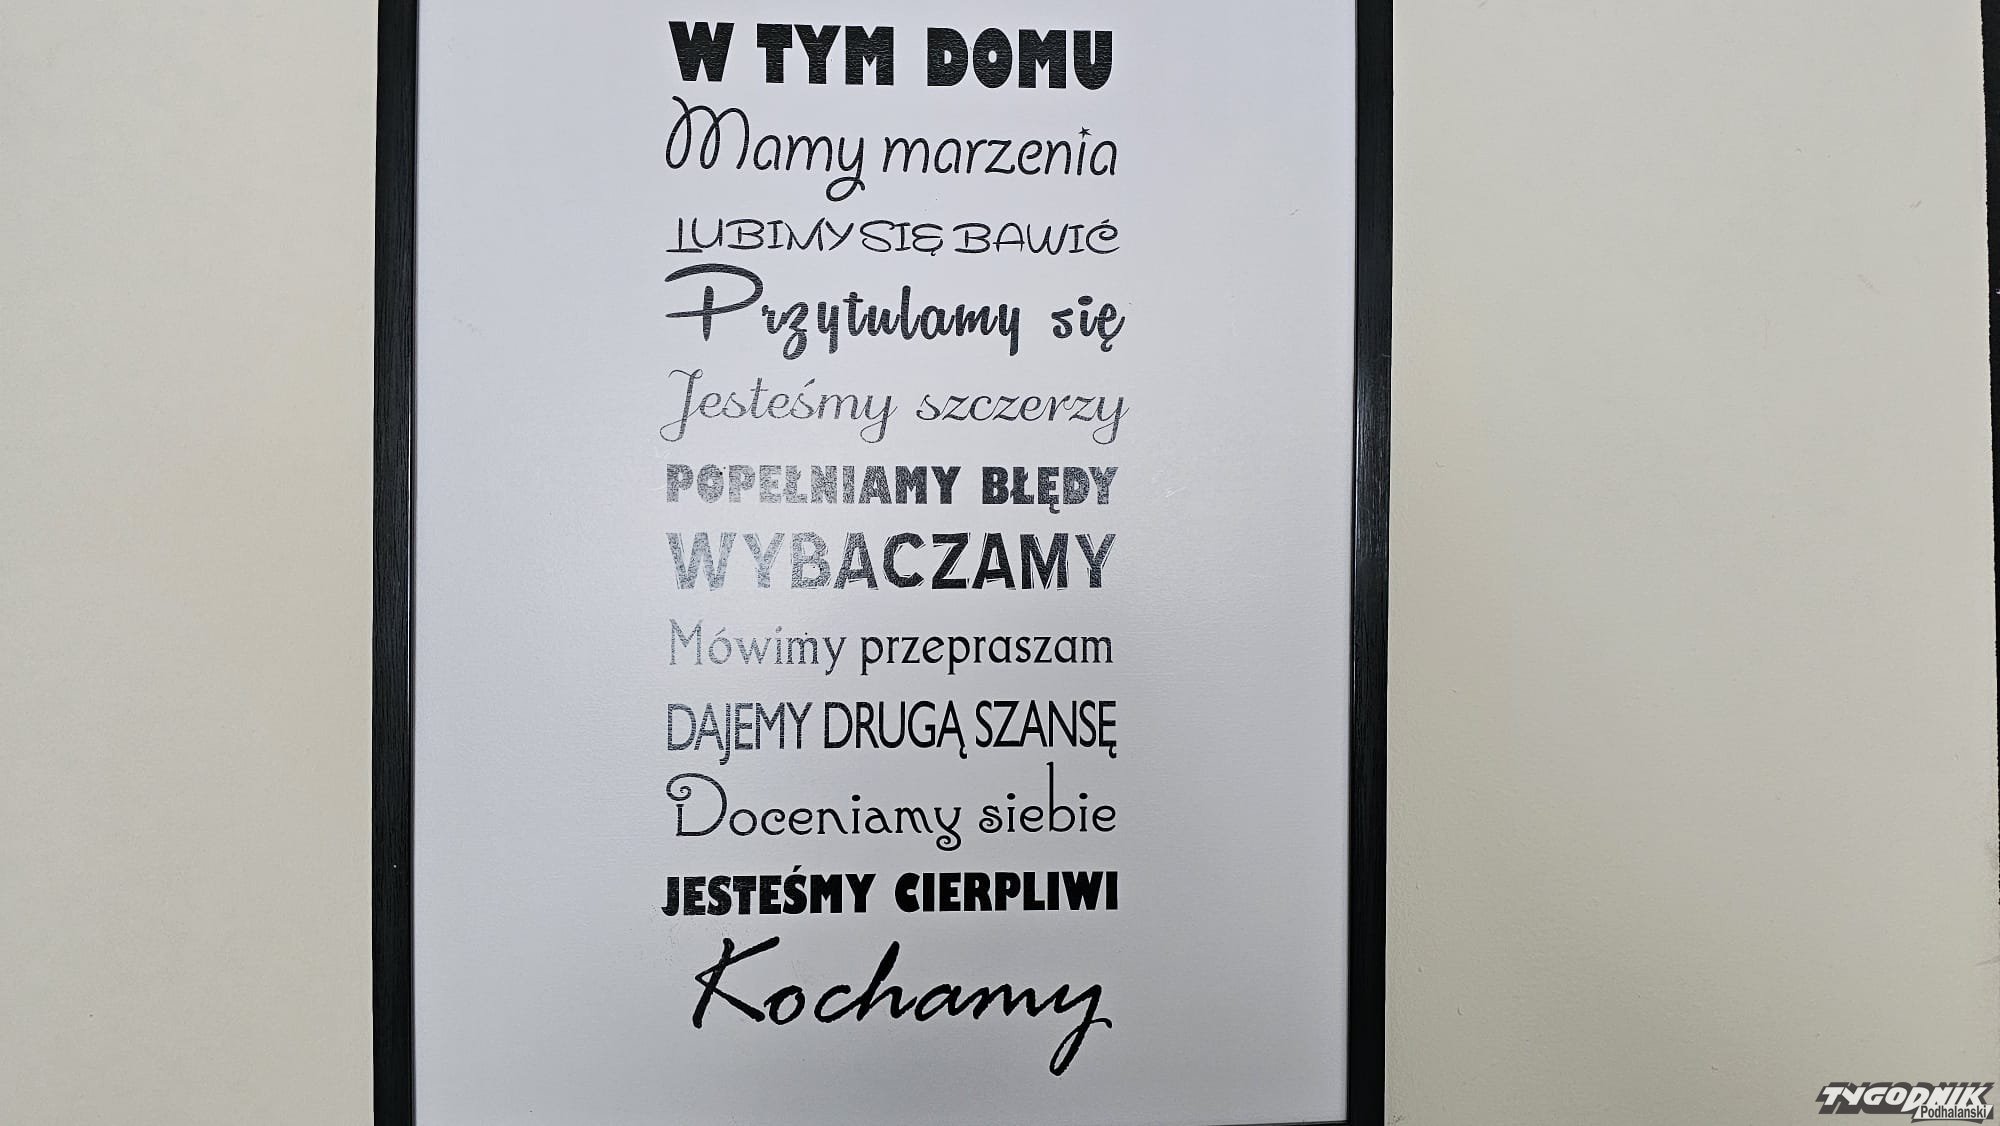 W TYM DOMU
Mamy marzenia
LUBIMY SIĘ BAWIĆ
Przytulamy się
Jesteśmy szczerzy
POPEŁNIAMY BŁĘDY
WYBACZAMY
Mówimy przepraszam
DAJEMY DRUGĄ SZANSĘ
Doceniamy siebie
JESTEŚMY CIERPLIWI
Kochamy
TYGODNIK
Podhalański